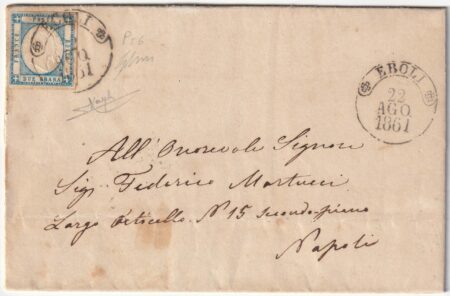 EBOLI
AGO
1861
FRANCO
DUE GRANA
EBOLI
22
AGO.
1861
All' Onorevole Signore
Sig. Federico Martucci
Largo N° 15 secondo piano
Napoli